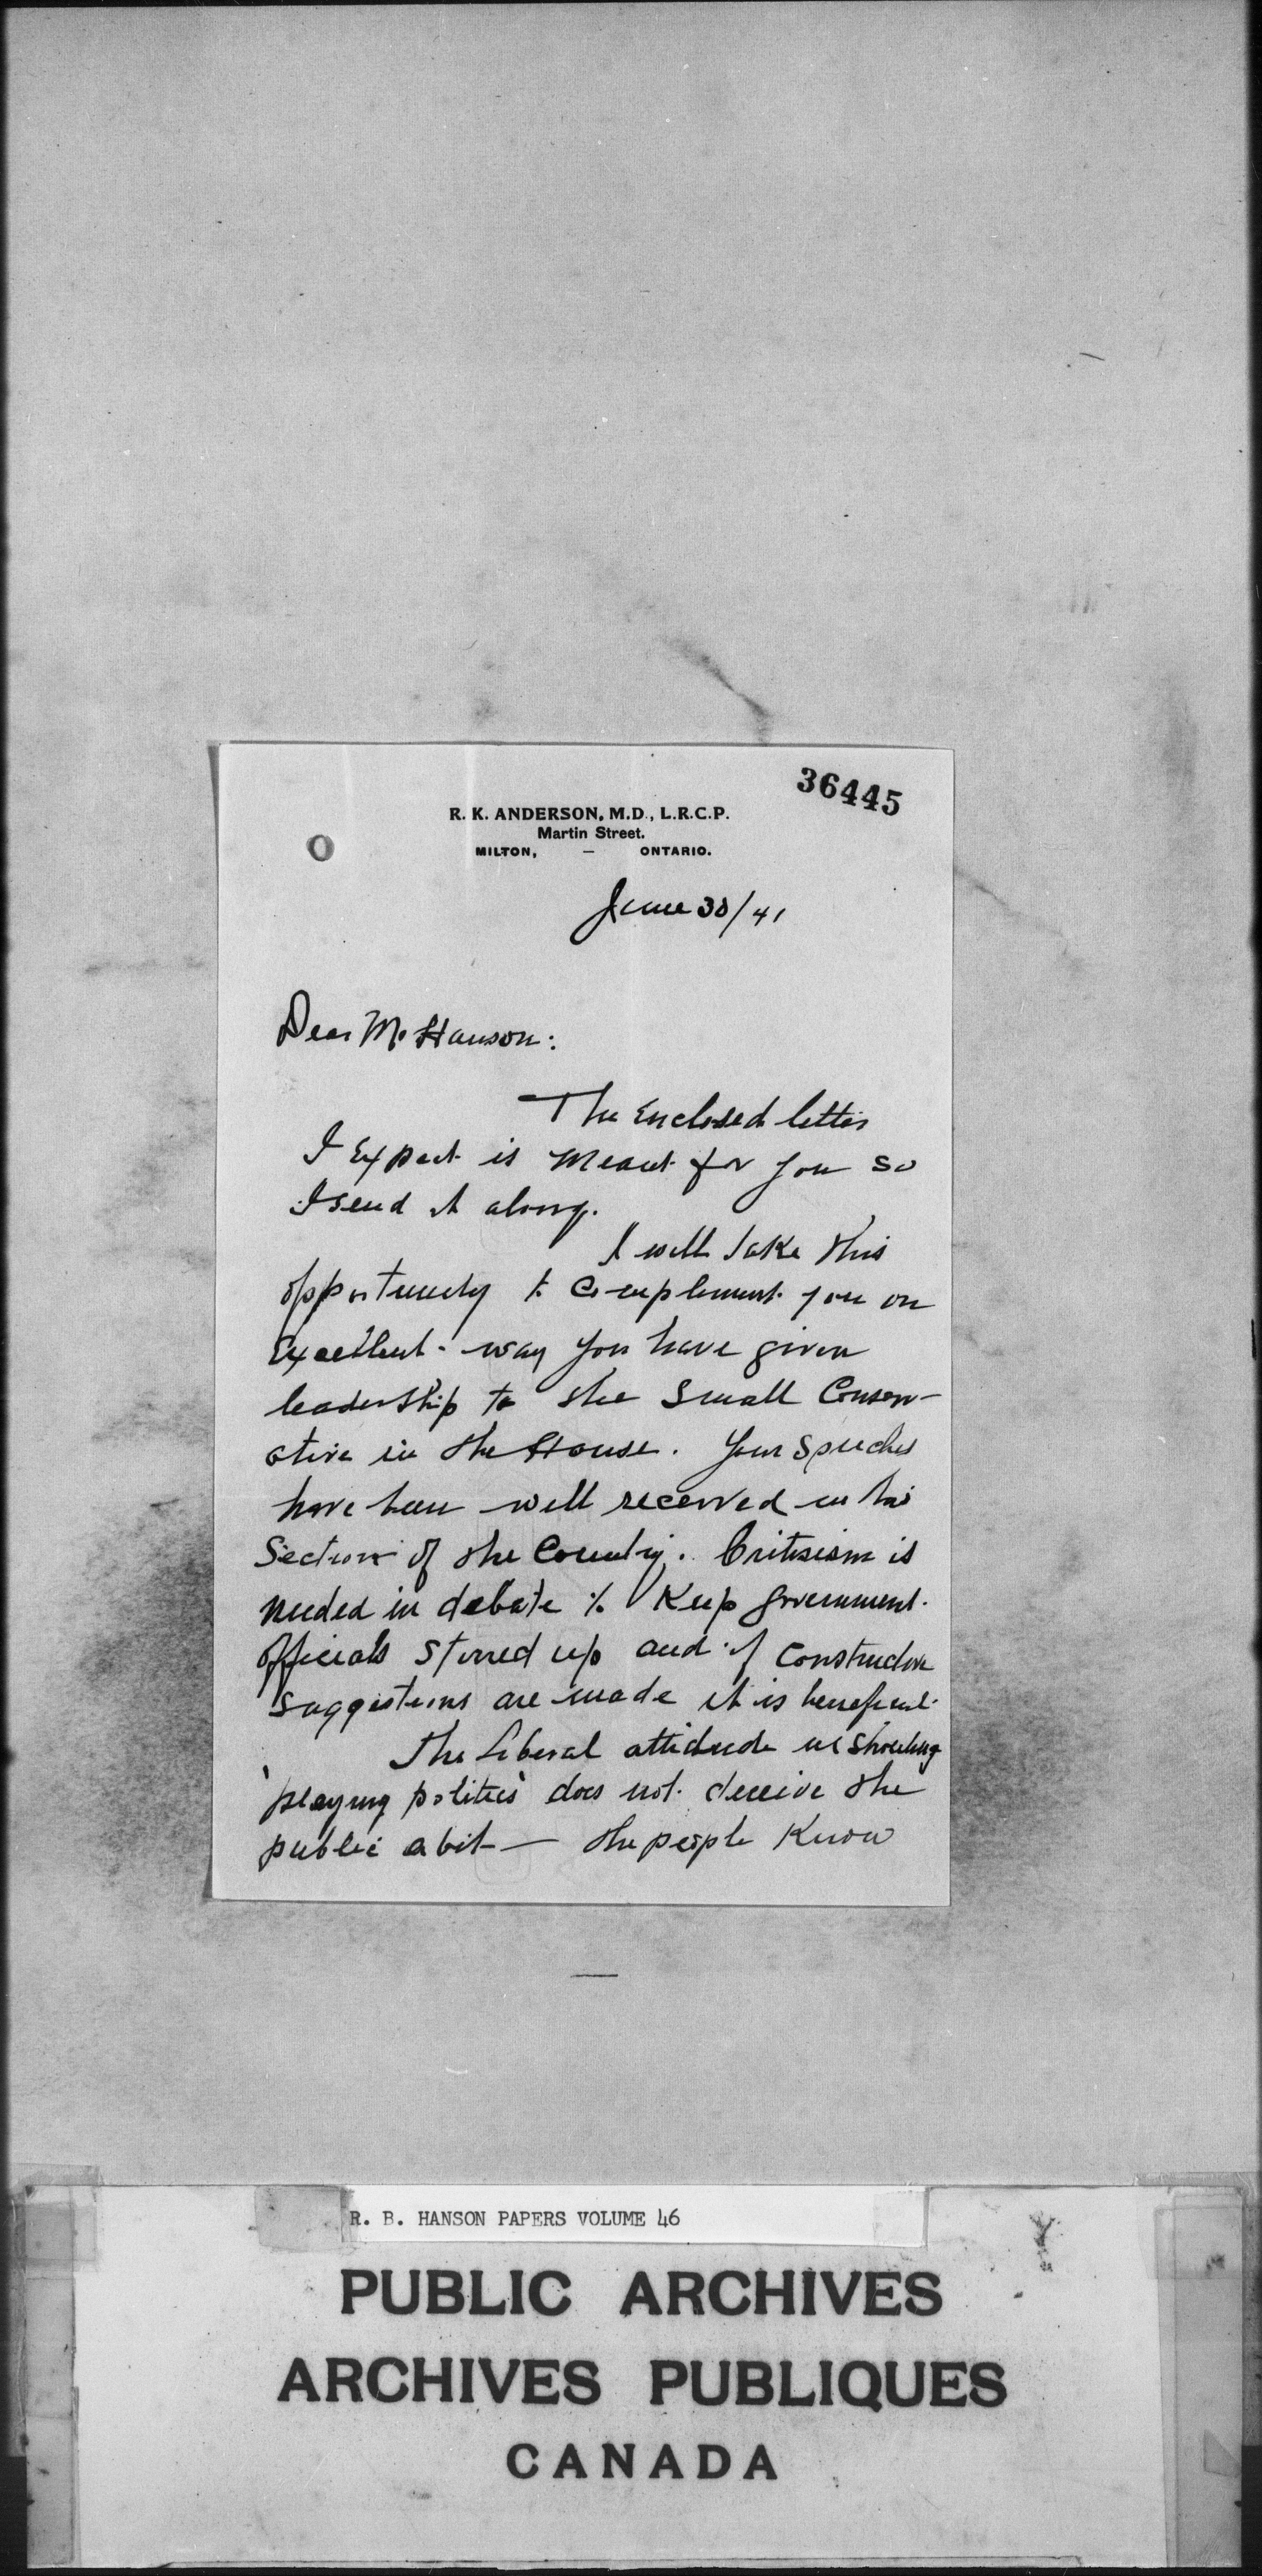 36445
R. K. ANDERSON, M.D., L.R.C.P.
Martin Street.
MILTON, — ONTARIO.
June 30/41
Dear Mr Hanson:
The Enclosed letter
I Expect is meant for you so
I send it along.
I will take this
opportunity to Compliment you on
Excellent way you have given
leadership to the Small Conserv-
ative in the House. Your Speeches
have been well received in this
Section of the Country. Criticism is
needed in debate to Keep government
officials stirred up and if Constructive
suggestions are made it is beneficial.
The Liberal attitude in shouting
'playing politics' does not deceive the
public a bit — the people Know
R. B. HANSON PAPERS VOLUME 46
PUBLIC ARCHIVES
ARCHIVES PUBLIQUES
CANADA